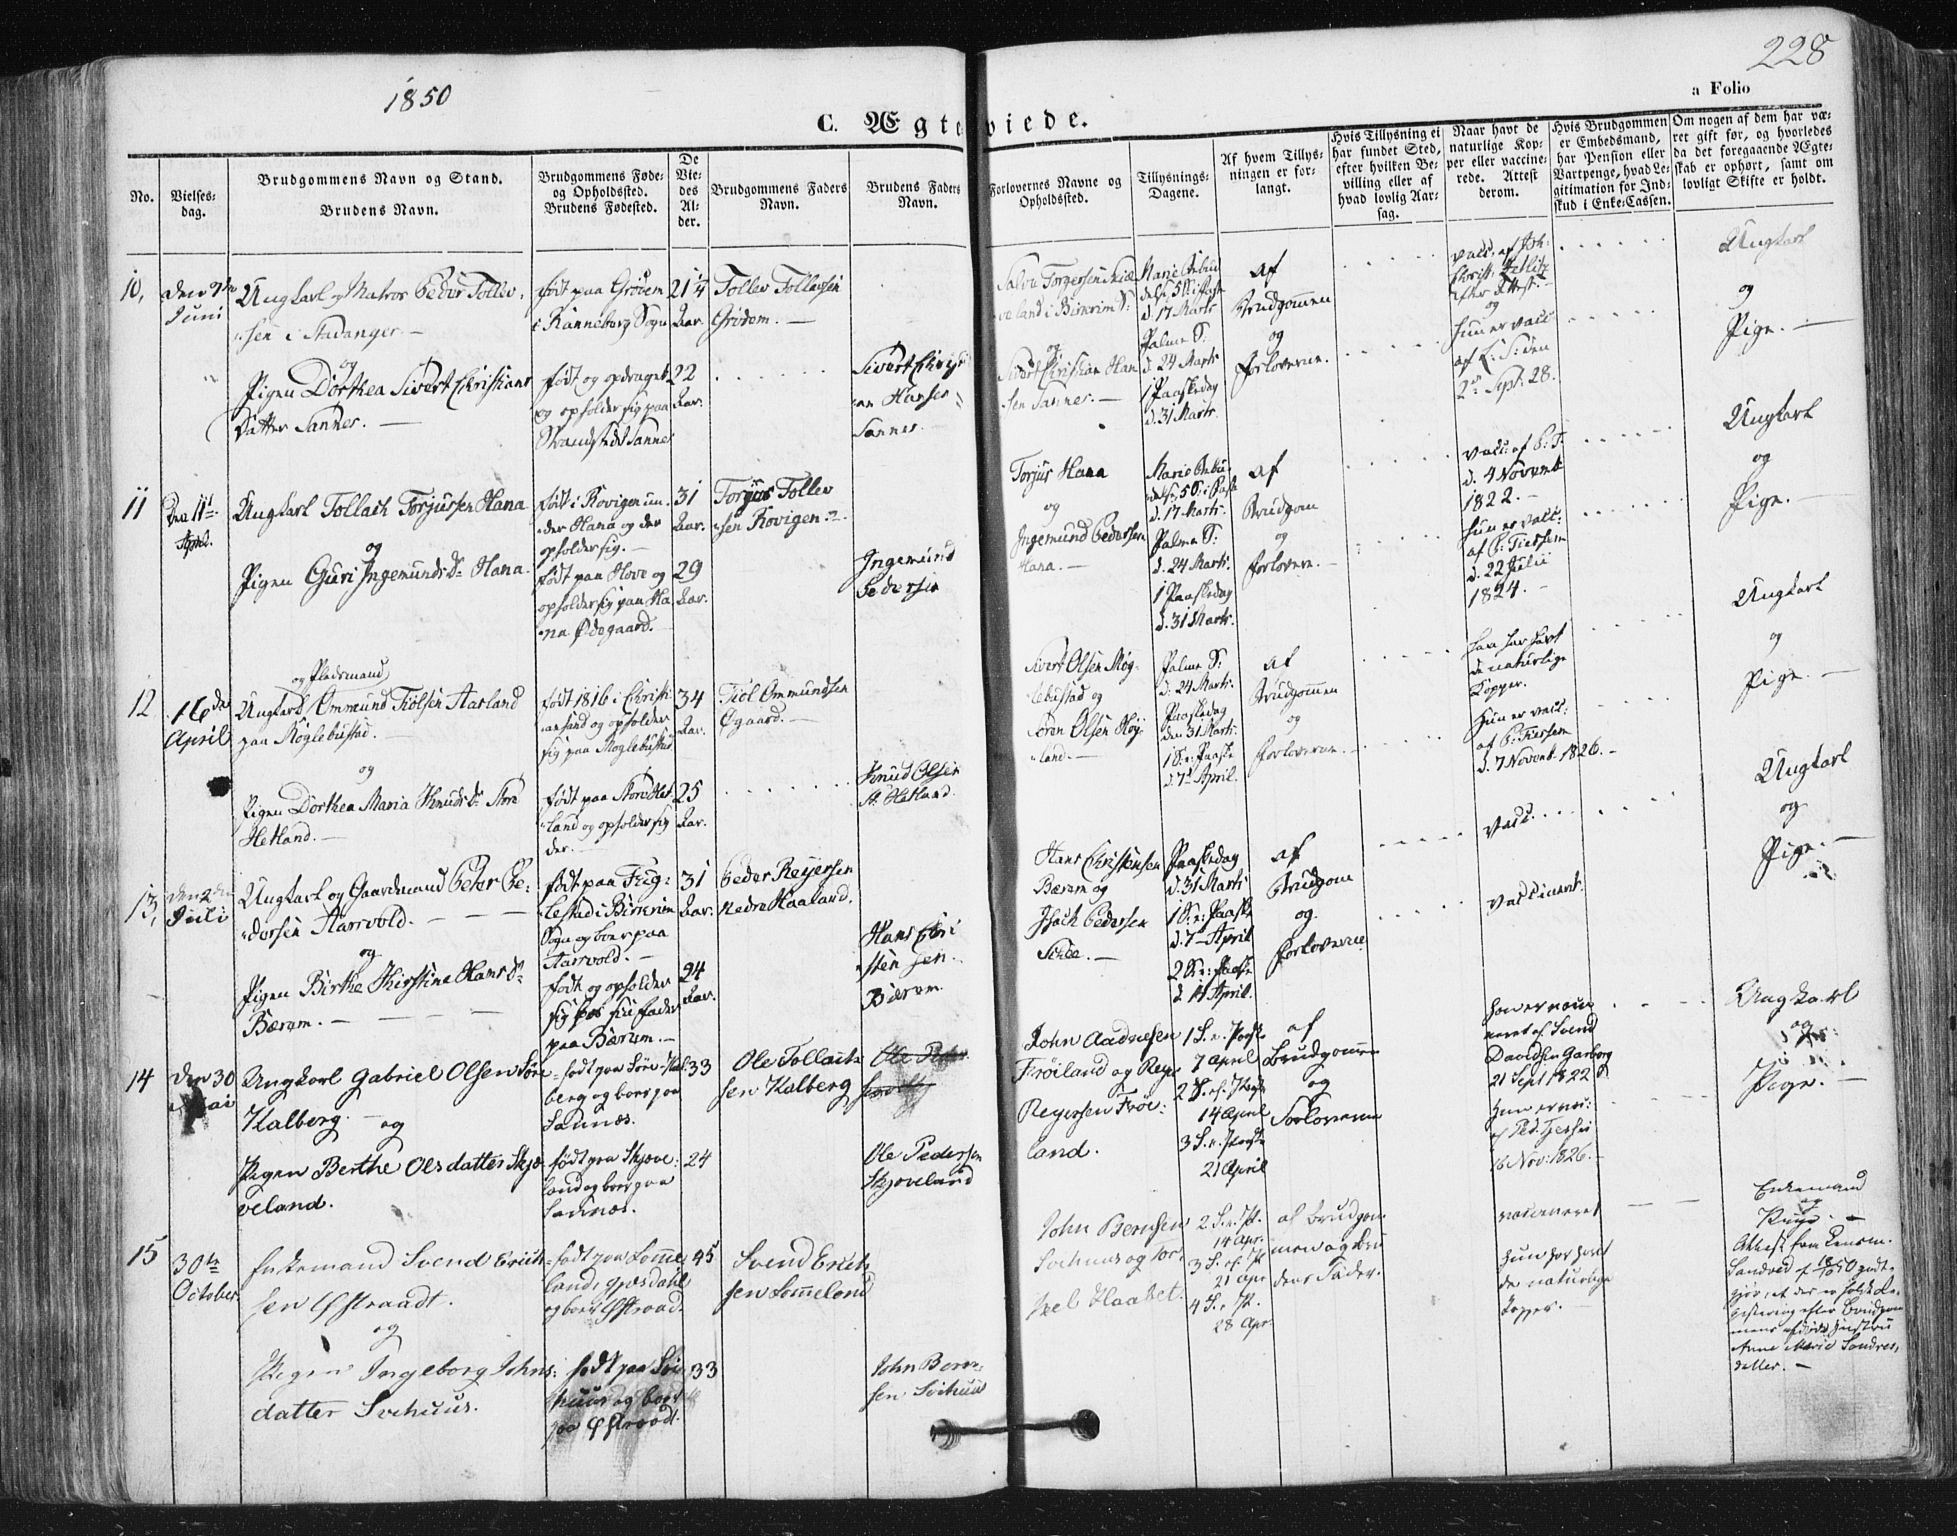 1850
228
a Folio
C. Ægteviede.
No.
Vielses-
dag.
Brudgommens Navn og Stand.
Brudens Navn.
Brudgommens Føde-
og Opholdssted.
Brudens Fødested.
De
Vie-
des
Al-
der.
Brudgommens Faders
Navn.
Brudens Faders
Navn.
Forlovernes Navne og
Opholdssted.
Tillysnings-
Dagene.
Af hvem Tillys-
ningen er for-
langt.
Hvis Tillysning ei
har fundet Sted,
efter hvilken Be-
villing eller af
hvad lovlig Aar-
sag.
Naar havt de
naturlige Kop-
per eller vaccine-
rede. Attest
derom.
Hvis Brudgommen
er Embedsmand,
har Pension eller
Vartpenge, hvad Le-
gitimation for Ind-
skud i Enke-Cassen.
Om nogen af dem har væ-
ret gift før, og hvorledes
da det foregaaende Ægte-
skab er ophørt, samt om
lovligt Skifte er holdt.
10,
Juni
Ungkarl og Matros Peder Tollev-
sen i Stavanger.
og
Pigen Dorthea Sivert Christians
Datter Sannes.
født paa Grødem
i Ranneborg Sogn
født og opdraget
og opholder sig paa
Strandstedet Sannes
21 1/4
Aar.
22
Aar.
Tollev Tollevsen
Grødem.
Sivert Christi-
an Hansen
Sannes.
og
Sivert Christian Han
sen Sannes.
Marie Bebu
delse, 5 S: i Faste
d. 17 Marts
Palme S:
d. 24 Marts
1 Paaskedag
d. 31 Marts.
af
Brudgommen
og
Forloverne.
og
hun er vacc
2den Sept: 28.
Ungkarl
og
Pige.
11
Den 11te
April.
Ungkarl Tollach Torjussen Hana
og
Pigen Guri Ingemundsdr Hana.
født i Rovigen un-
der Hana og der
opholder sig.
født paa Hove og
opholder sig paa Ha
na Ødegaard.
31
Aar.
29
Aar.
Torjus Tollev
sen Rovigen.
Ingemund
Pedersen
Torjus Hana
og
Ingemund Pedersen
Hana.
Marie Bebu-
delse, 5 S: i Faste
d. 17 Marts.
Palme S:
d. 24 Marts.
1 Paaskedag
d. 31 Marts.
af
Brudgom
og
Forlovere.
d. 4 Novemb
1822.
hun er vacc:
d. 22 Julii
1824.
Ungkarl
og
Pige.
12
16de
April
og Pladsmand
Ungkarl Ommund Tiølsen Aarland
paa Møglebustad.
og
Pigen Dorthea Maria Knudsdr Store
Hetland.
født 1816 i Christi
ansand og opholder
sig paa Møglebustad
født paa Store Het
land og opholder sig
der.
34
Aar.
25
Aar.
Tiøl Ommundsen
Øgaard.
Knud Olsen
St. Hetland.
Sivert Olsen Møg-
lebustad og
Søren Olsen Høy-
land.
Palme S:
d. 24 Marts.
Paaskedag
den 31 Marts.
1 S: e: Paaske
d. 7de April.
af
Brudgommen
og
Forloverne.
han har havt
de naturlige
Kopper.
hun er vacc:
d. 7 Novemb. 1826.
Ungkarl
og
Pige.
13,
den 2den
Juli
Ungkarl og Gaardmand Peter Pe-
dersen Aarrvold.
og
Pigen Birthe Kirstine Hansdr
Bærem.
født paa Fug-
lestad i Birkrim
Sogn og boer paa
Aarrvold.
født og opholder
sig hos sin Fader
paa Bærem.
31
Aar.
24
Aar.
Peder Reyersen
Nedre Haaland.
Hans Chri
sten sen.
Bærem.
Hans Christensen
Bærem og
Isach Pedersen
Paaskedag
d. 31 Marts
1 S: e: Paaske
d. 7 April
2 S: e: Paaske
d. 14 April.
af
Brudgom
og
Forloverne
vacc.
vaccineret.
Ungkarl
og
Pige.
14
den 30
Mai
Ungkarl Gabriel Olsen Søre
Kalberg.
og
Pigen Berthe Olsdatter Skjæ
veland.
født paa Søre-Kal-
berg og boer paa
Sannæs.
født paa Skjæve-
land og boer paa
Sannæs.
33
24
Ole Tollach
sen Kalberg
Ole Pedersen
Skjæveland
John Aadnesen
Frøiland og Reyer
Reyersen Frøi-
land.
1 S. e. Paaske
7 April
2 S. ef. Paaske
14 April
3 S. e. Paaske
21 April
af
Brudgommen
og
Forloverne
han er vacci
neret af Svend
Davidsen Garborg
21 Sept 1822
hun er vac:
af Ped. Tjersen
6 Nov: 1826.
Ungkarl
og
Pige.
15
30te
October
Enkemand Svend Erich-
sen Østraadt.
og
Pigen Ingeborg Johns-
datter Svihuus.
født paa Lomme
land, Gjesdahl
og boer Østraad.
født paa Svi
huus og boer
paa Østraadt.
45
33
Svend Erich
sen Lommeland
John Bern-
sen Svihuus
John Bernsen
Svihuus og Tor-
kel Haabet.
2 S. e. P.
14 Apr.
3 S. ef. P
21 Apr
4 S. e. P.
28 Apr.
af Brudgom-
men og Bru
dens Fader.
vaccineret
hun har havt
de naturlige
Kopper.
Enkemand
og
Pige.
Attest fra Lensm.